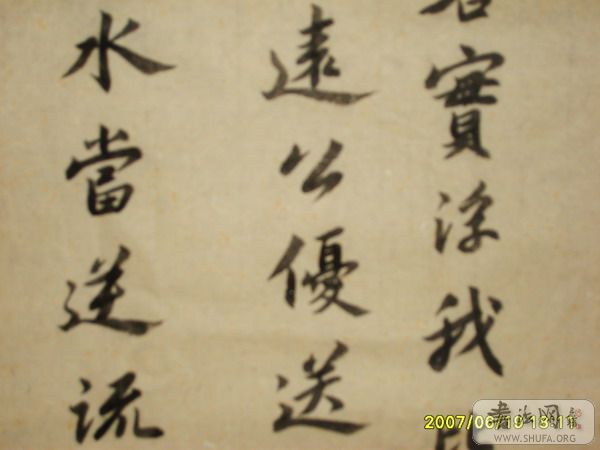 實浮我
遠公優送
水當逆流
2007/06/19 13:11
書法网
WWW.SHUFA.ORG